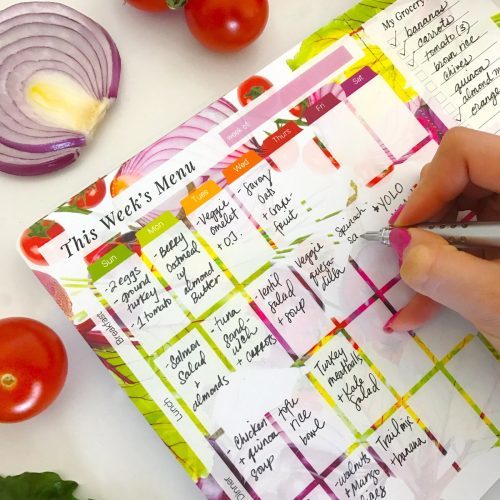 This Week's Menu
week of
Sun
Mon
Tues
Wed
Thurs
Fri
Sat
Breakfast
- 2 eggs
- ground
turkey
- 1 tomato
- Berry
Oatmeal
w/
almond
Butter
- Veggie
omelet
+ O.J.
- Savory
Oats
+ Grape-
fruit
Spinach
* YOLO
Lunch
- Salmon
Salad
+
almonds
- tuna
Sand-
wich
+ carrots
- lentil
Salad
+ soup
Veggie
quesa-
dilla
Dinner
- chicken
+ quinoa
soup
tofu
rice
bowl
Turkey
meatballs
+ Kale
Salad
- walnuts
Mango
Trail mix
+ banana
My Grocery
✓ bananas
✓ carrots
✓ tomato (3)
brown rice
chives
quinoa
almond m
orange